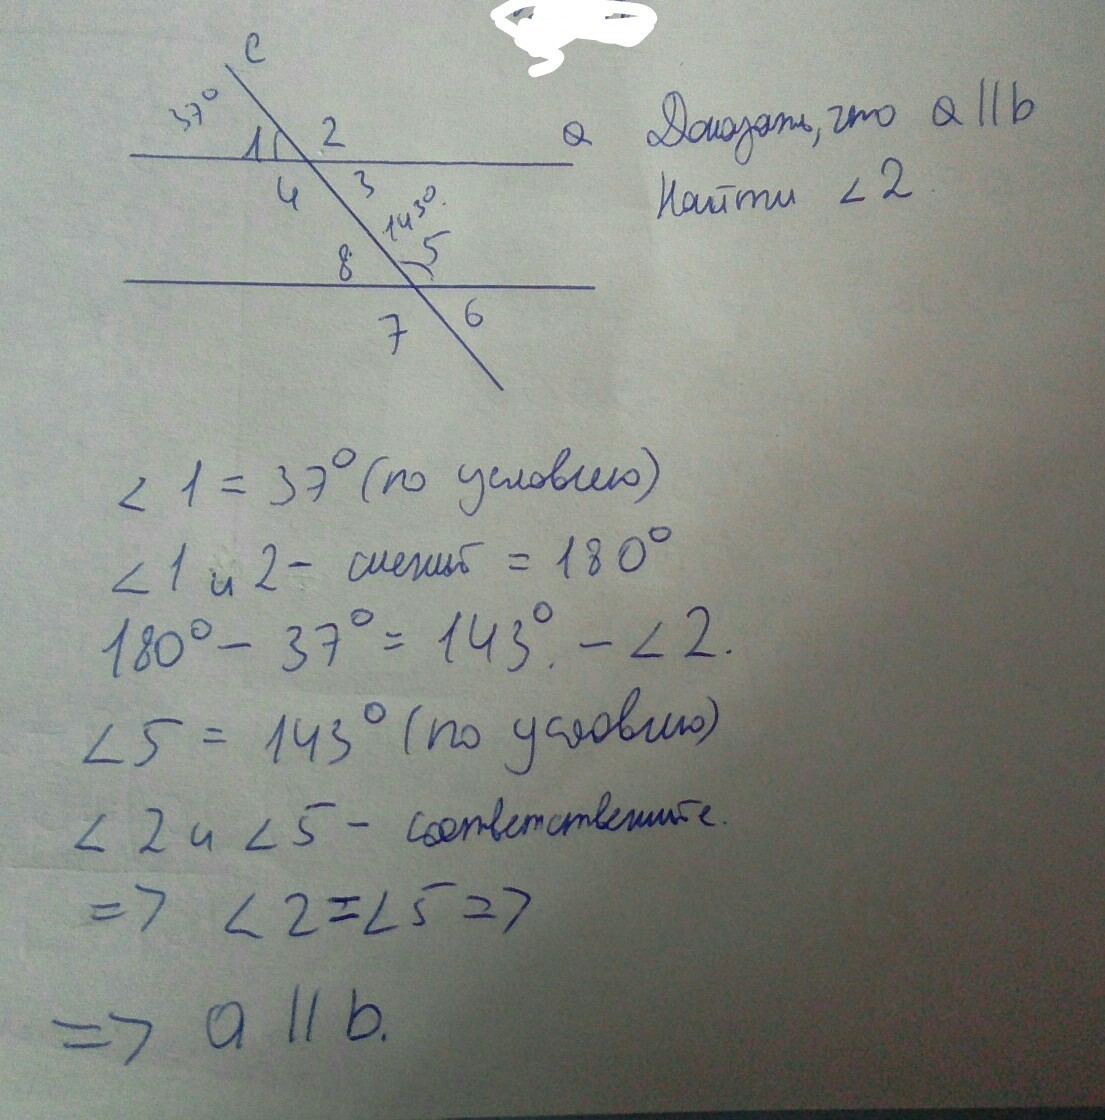 c
37°
1 2 a
4 3
143°
8 5
7 6
Доказать, что a || b
Найти ∠2.
∠1 = 37° (по условию)
∠1 и 2 - смежные = 180°
180° - 37° = 143°. - ∠2.
∠5 = 143° (по условию)
∠2 и ∠5 - соответственные.
=> ∠2 = ∠5 =>
=> a || b.